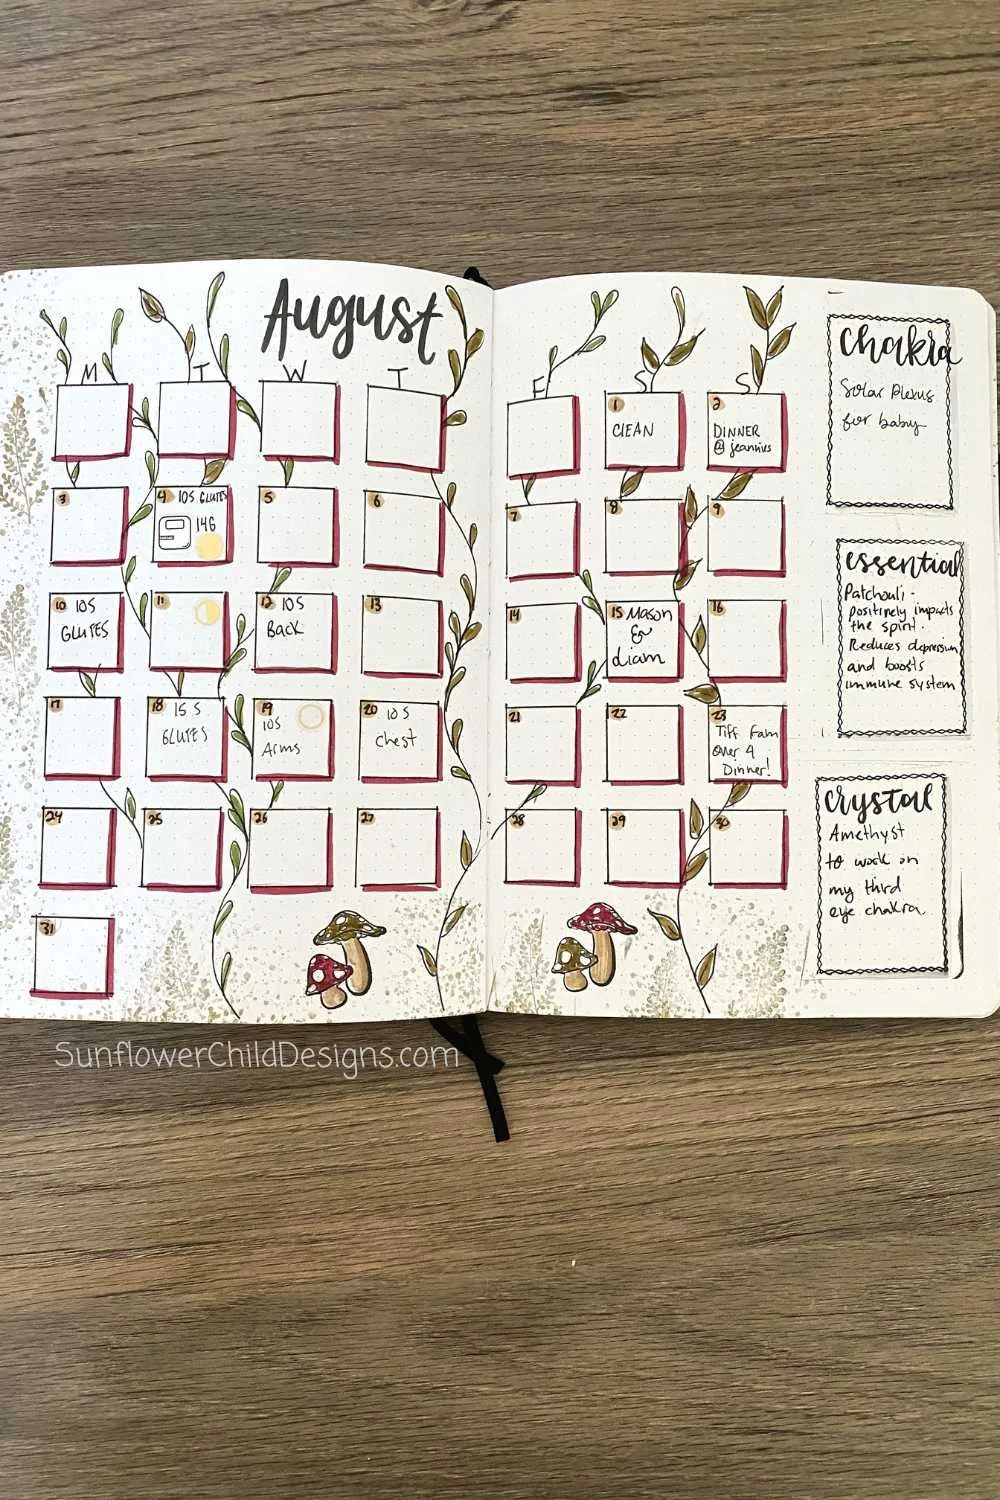 August
M T W T F S S
1
CLEAN
2
DINNER
@ jeannius
3
4 10S GLUTES
146
5
6
7
8
9
10 10S
GLUTES
11
12 10S
Back
13
14
15 Mason
&
Liam
16
17
18 15 S
GLUTES
19
10S
Arms
20 10 S
Chest
21
22
23
Tiff Fam
Over 4
Dinner!
24
25
26
27
28
29
30
31
Chakra
Solar Plexus
for baby
essential
Patchouli -
positively impacts
the spirit.
Reduces depression
and boosts
immune system
crystal
Amethyst
to work on
my third
eye chakra.
SunflowerChildDesigns.com